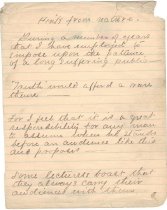 Hints from nature.
During a number of years
that I have employed to
impose upon the patience
of a long suffering public
Truth would afford a more
theme
For I feel that it is a great
responsibility for any man
to assume when he stands
before an audience like this
and proposes
Some lecturers boast that
they always carry their
audiences with them